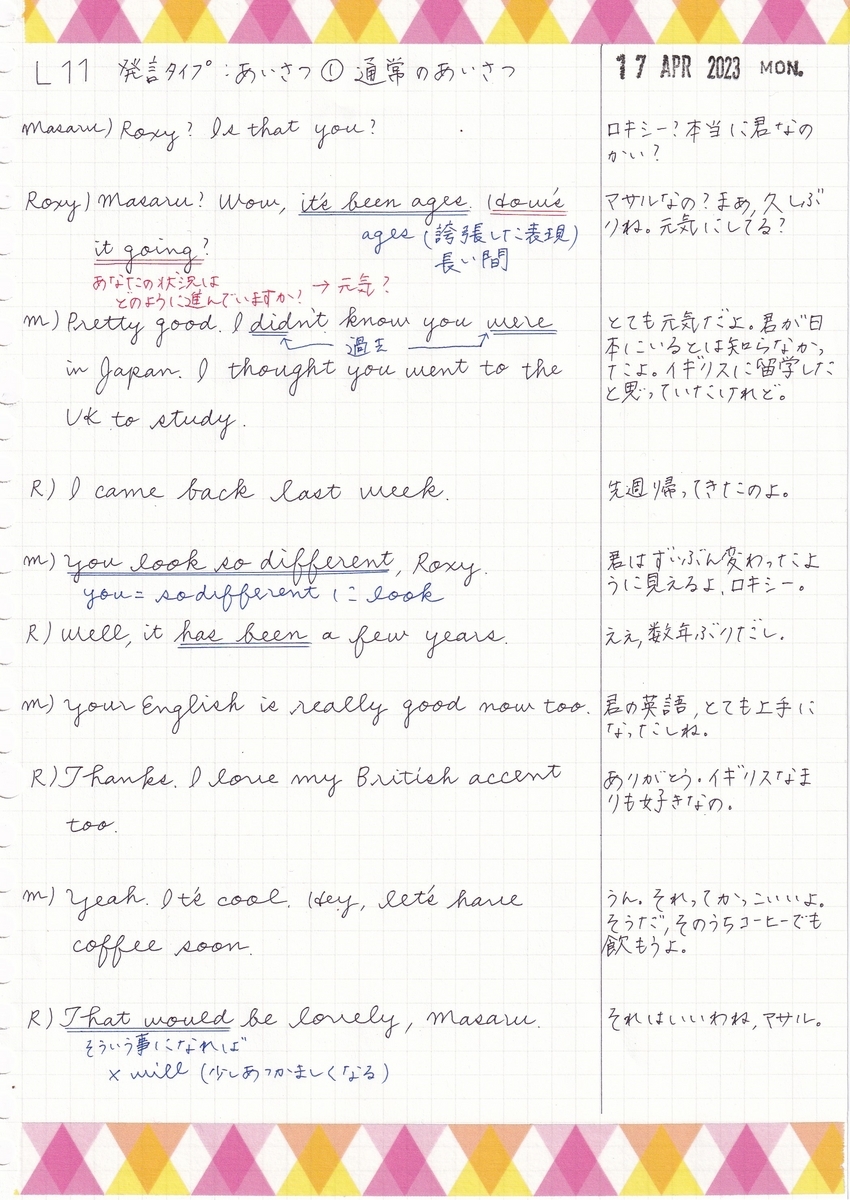 L11 発言タイプ：あいさつ① 通常のあいさつ
17 APR 2023 MON.
Masaru) Roxy? Is that you?
ロキシー？本当に君なの
かい？
Roxy) Masaru? Wow, it's been ages. How's
ages (誇張した表現)
長い間
it going?
あなたの状況は
どのように進んでいますか？→元気？
マサルなの？まあ、久しぶ
りね。元気にしてる？
M) Pretty good. I didn't know you were
過去
in Japan. I thought you went to the
UK to study.
とても元気だよ。君が日
本にいるとは知らなかっ
たよ。イギリスに留学した
と思っていたけれど。
R) I came back last week.
先週帰ってきたのよ。
M) You look so different, Roxy.
you = so different に look
君はずいぶん変わったよ
うに見えるよ、ロキシー。
R) Well, it has been a few years.
ええ、数年ぶりだし。
M) Your English is really good now too.
君の英語、とても上手に
なったしね。
R) Thanks. I love my British accent
too.
ありがとう。イギリスなま
りも好きなの。
M) Yeah. It's cool. Hey, let's have
coffee soon.
うん。それってかっこいいよ。
そうだ、そのうちコーヒーでも
飲もうよ。
R) That would be lovely, Masaru.
そういう事になれば
× will (少しあつかましくなる)
それはいいわね、マサル。